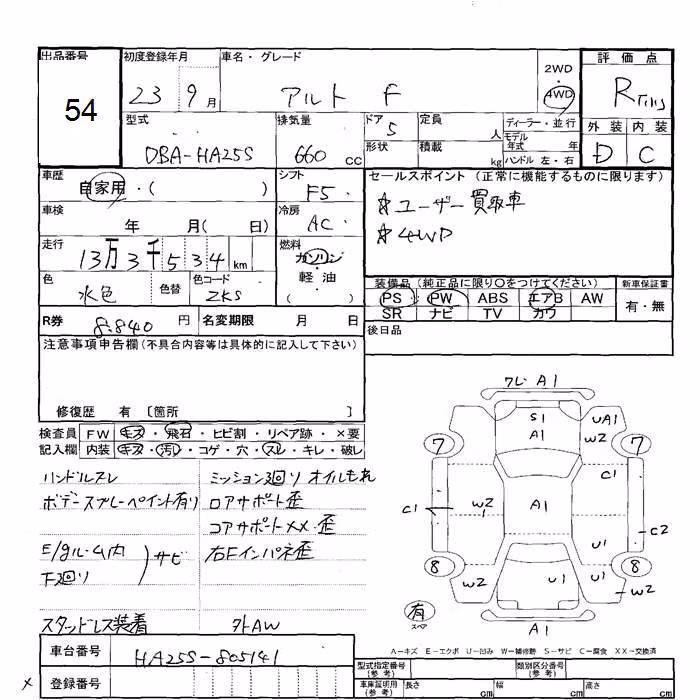 出品番号 初度登録年月 車名・グレード 2WD・4WD 評価点
54 23 9月 アルト F R
型式 排気量 ドア 定員 人 ディーラー・並行 外装 内装
DBA-HA25S 660 CC 5 形状 積載 kg モデル年式 年 ハンドル 左・右 D C
車歴 自家用・( ) シフト F5 セールスポイント(正常に機能するものに限ります)
車検 年 月( 日) 冷房 AC ☆ユーザー買取車
走行 13万3千534km 燃料 ガソリン 軽油 ( ) ☆4WD
色 水色 色替 色コード ZKS
装備品(純正品に限り○をつけてください) 新車保証書
PS PW ABS エアB AW 有・無
SR ナビ TV カワ
R券 8.840円 名変期限 月 日 後日品
注意事項申告欄(不具合内容等は具体的に記入して下さい)
修復歴 有 〔箇所 〕
検査員 FW キズ・飛石・ヒビ割・リペア跡・×要
記入欄 内装 キズ・汚レ・コゲ・穴・スレ・キレ・破レ
ハンドルスレ ミッション廻リ オイルもれ
ボデースプレーペイント有り ロアサポート歪
コアサポートXX・歪
E/gルーム内 サビ 右Fインパネ歪
下廻り
スタッドレス装着 外AW
ワレ A1
S1
A1
UA1
W2
7 7
C1
C1 W2 A1
C2
U1
8 8
W2 U1 U1 W2
有
スペア
A1
A-キズ E-エクボ U-凹み W-補修跡 S-サビ C-腐食 XX-交換済
車台番号 HA25S-805141 型式指定番号(参考) 類別区分番号(参考)
× 登録番号 車庫証明用(参考) 長さ cm 幅 cm 高さ cm